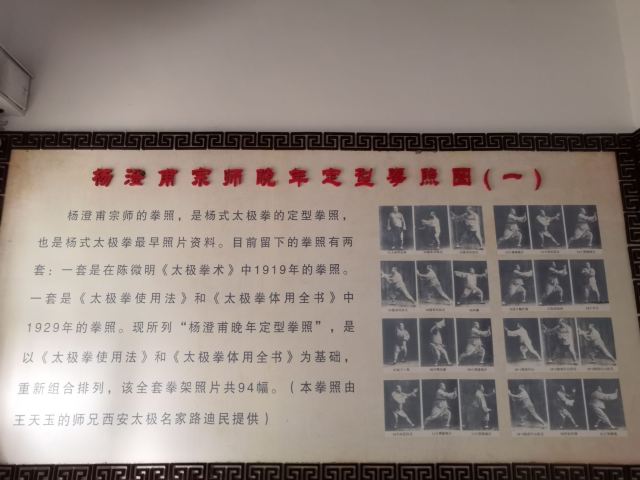 杨澄甫宗师晚年定型拳照图(一)
杨澄甫宗师的拳照，是杨式太极拳的定型拳照，
也是杨式太极拳最早照片资料。目前留下的拳照有两
套：一套是在陈微明《太极拳术》中1919年的拳照。
一套是《太极拳使用法》和《太极拳体用全书》中
1929年的拳照。现所列“杨澄甫晚年定型拳照”，是
以《太极拳使用法》和《太极拳体用全书》为基础，
重新组合排列，该全套拳架照片共94幅。（本拳照由
王天玉的师兄西安太极名家路迪民提供）